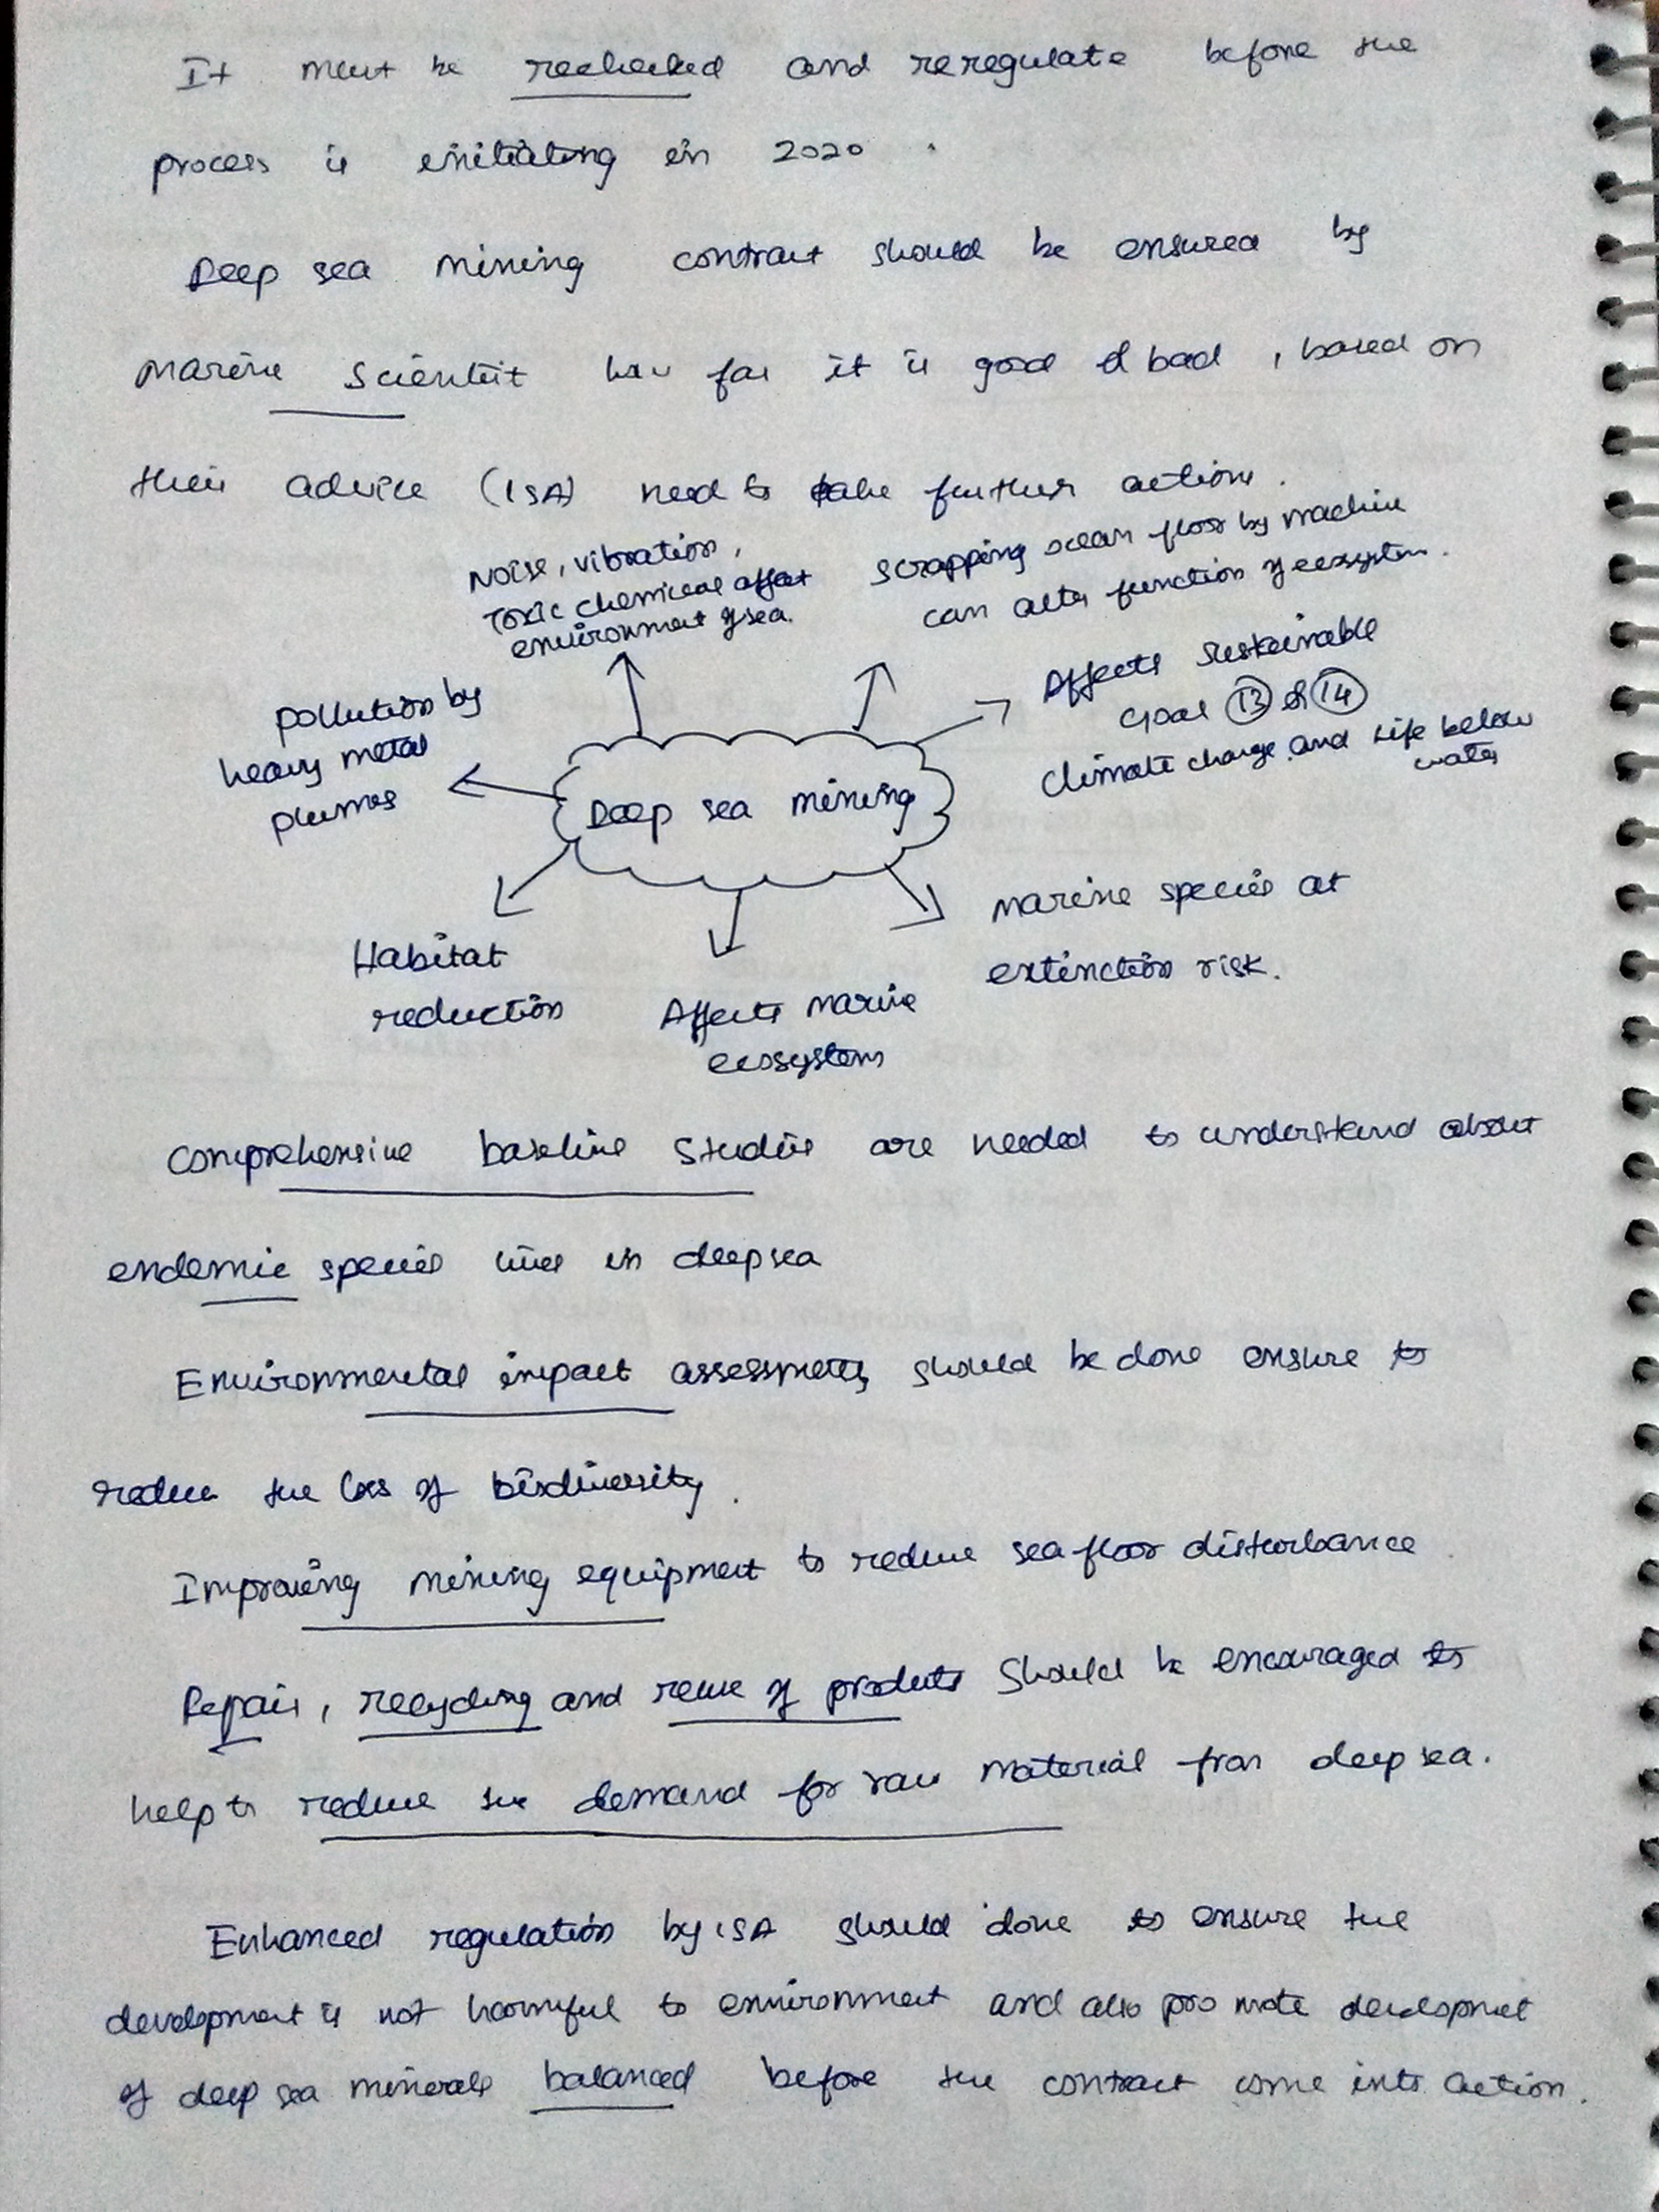 It must be rechecked and reregulate before the
process is initiating in 2020.
Deep sea mining contract should be ensured by
marine scientist how far it is good & bad, based on
their advice (ISA) need to take further actions.
Noise, vibration,
Toxic chemical affect
environment of sea.
Scrapping ocean floor by machine
can alter function of ecosystem.
Affects sustainable
Goal 13 & 14
Climate change and Life below
water
pollution by
heavy metal
plumes
Deep sea mining
Habitat
reduction
Affects marine
ecosystem
marine species at
extinction risk.
Comprehensive baseline studies are needed to understand about
endemic species lives in deepsea
Environmental impact assessments should be done ensure to
reduce the loss of biodiversity.
Improving mining equipment to reduce seafloor disturbance
Repair, recycling and reuse of products should be encouraged to
help to reduce the demand for raw material from deep sea.
Enhanced regulation by ISA should done to ensure the
development is not harmful to environment and also promote development
of deep sea minerals balanced before the contract come into action.